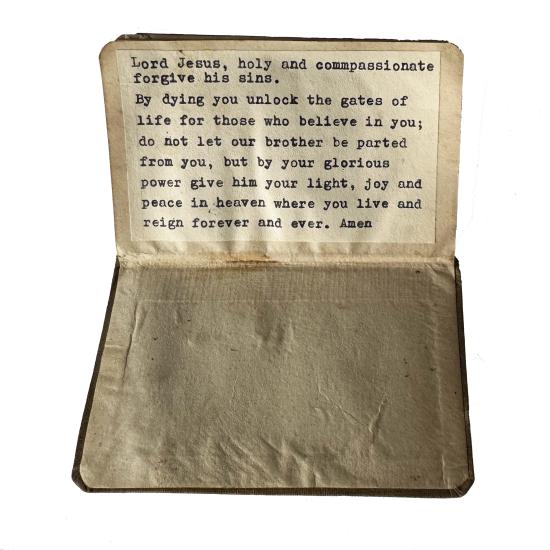 Lord Jesus, holy and commpassionate
forgive his sins.
By dying you unlock the gates of
life for those who believe in you;
do not let our brother be parted
from you, but by your glorious
power give him your light, joy and
peace in heaven where you live and
reign forever and ever. Amen